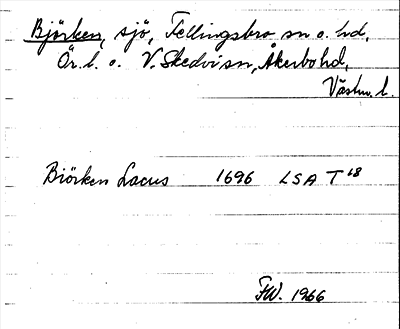 Björken, sjö, Fellingsbro sn o. hd,
Ör. l. o. V. Skedvi sn, Åkerbo hd,
Västm. l.
Biörken Lacus 1696 LSA T 68
FW. 1966